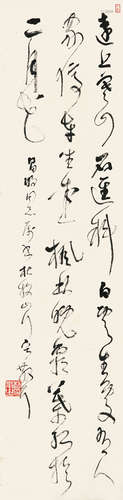 遠上寒山石徑斜白雲生處有人
家停車坐愛楓林晚霜葉紅於
二月花
同志屬書杜牧山行